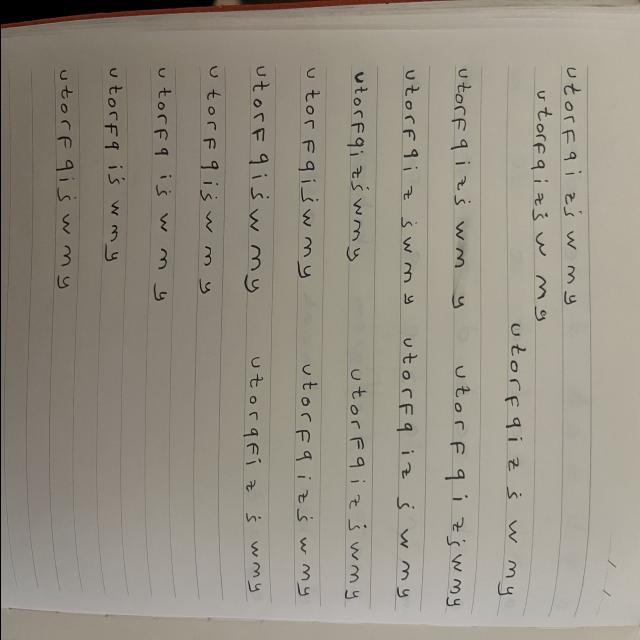 utorFqizjwmy
utorFqizjwmy
utorFqizjwmy
utorFqizjwmy utorFqizjwmy
utorFqizjwmy utorFqizjwmy
utorFqizjwmy utorFqizjwmy
utorFqijwmy utorFqizjwmy
utorFqijwmy utorqFizjwmy
utorFqijwmy
utorFqijwmy
utorFqijwmy
utorFqijwmy